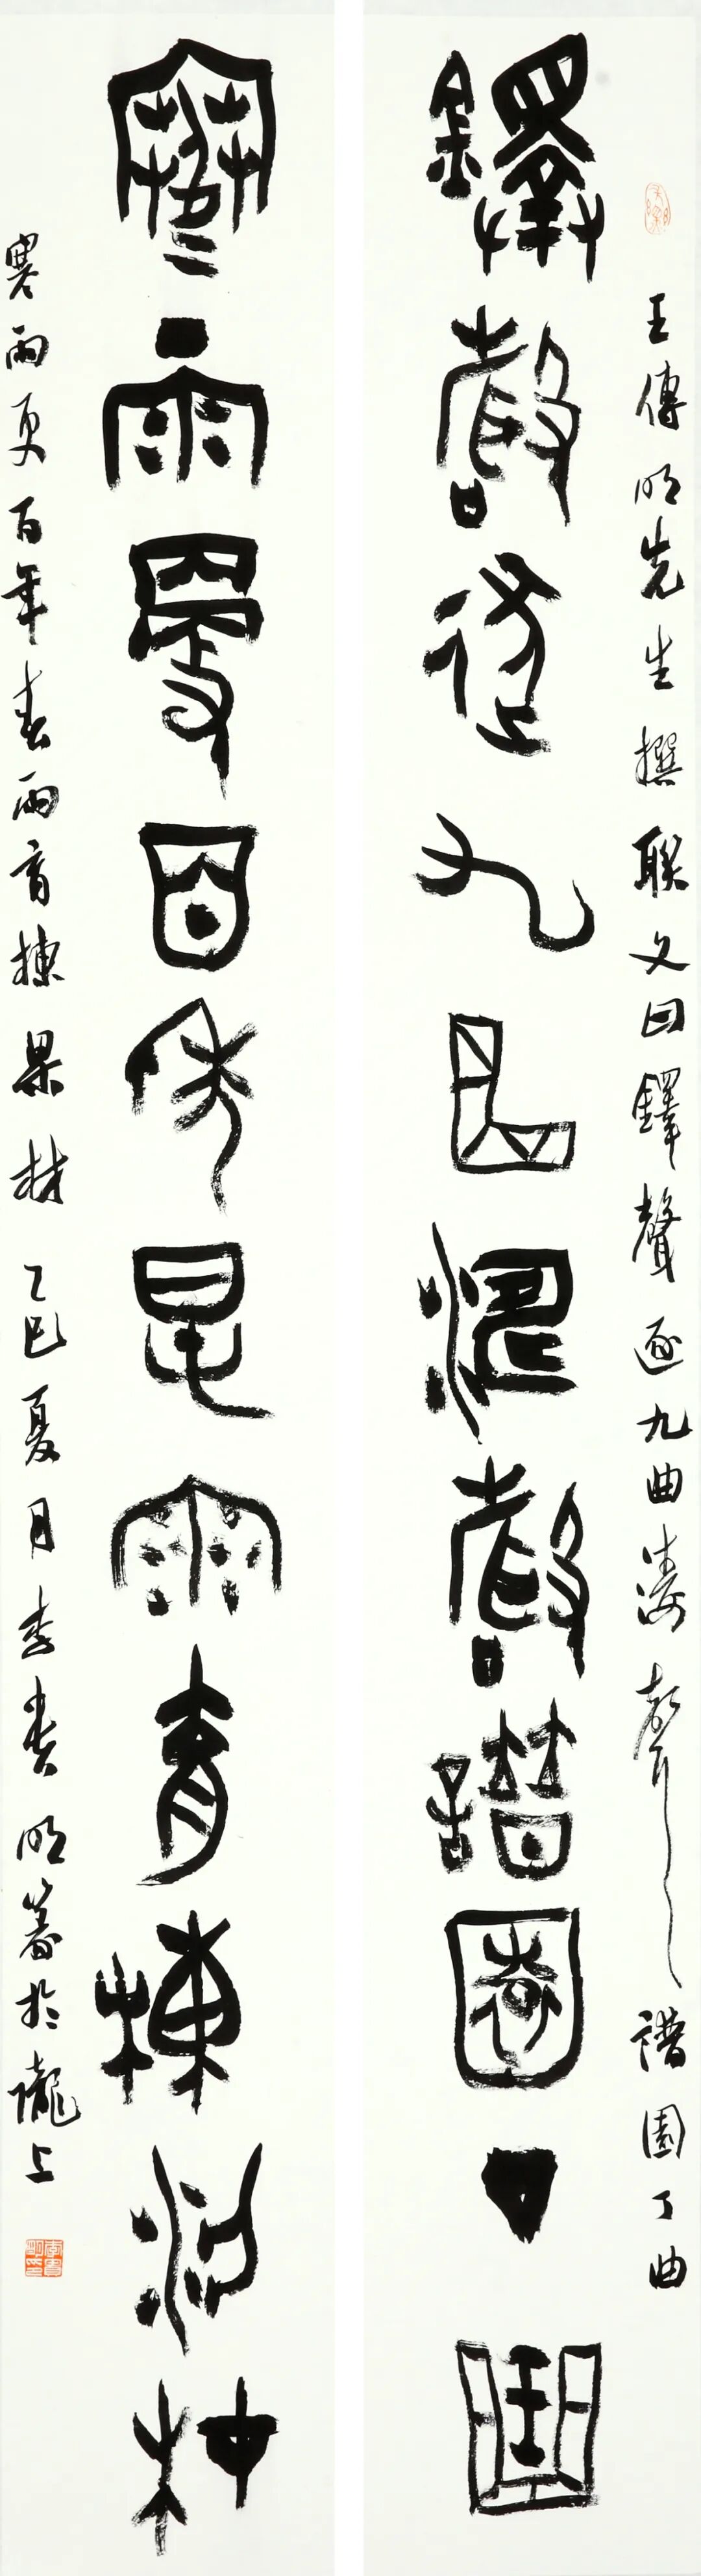 王傳明先生撰聯文曰鐸聲逐九曲濤聲譜園丁曲
鐸聲逐九曲濤聲譜園丁曲
寒雨更百年春雨育棟梁材
寒雨更百年春雨育棟梁材 乙巳夏月李貴明篆於隴上